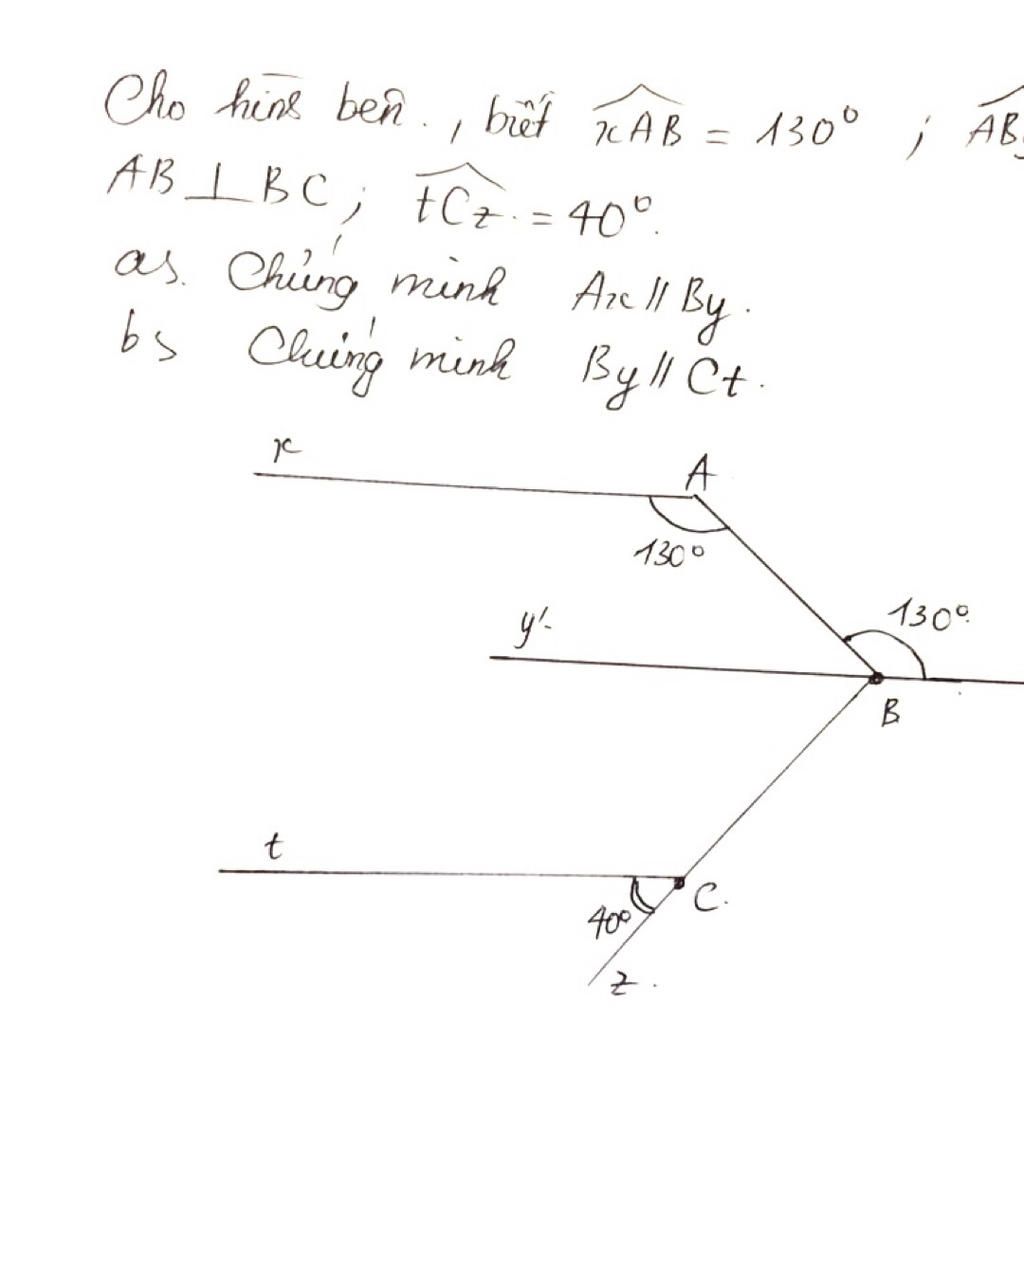 Cho hình bên., biết xAB = 130° ; AB
AB ⊥ BC ; tCz = 40°.
a, Chứng minh Ax // By.
b, Chứng minh By // Ct.
x
A
130°
y'
130°
B
t
C.
40°
z.